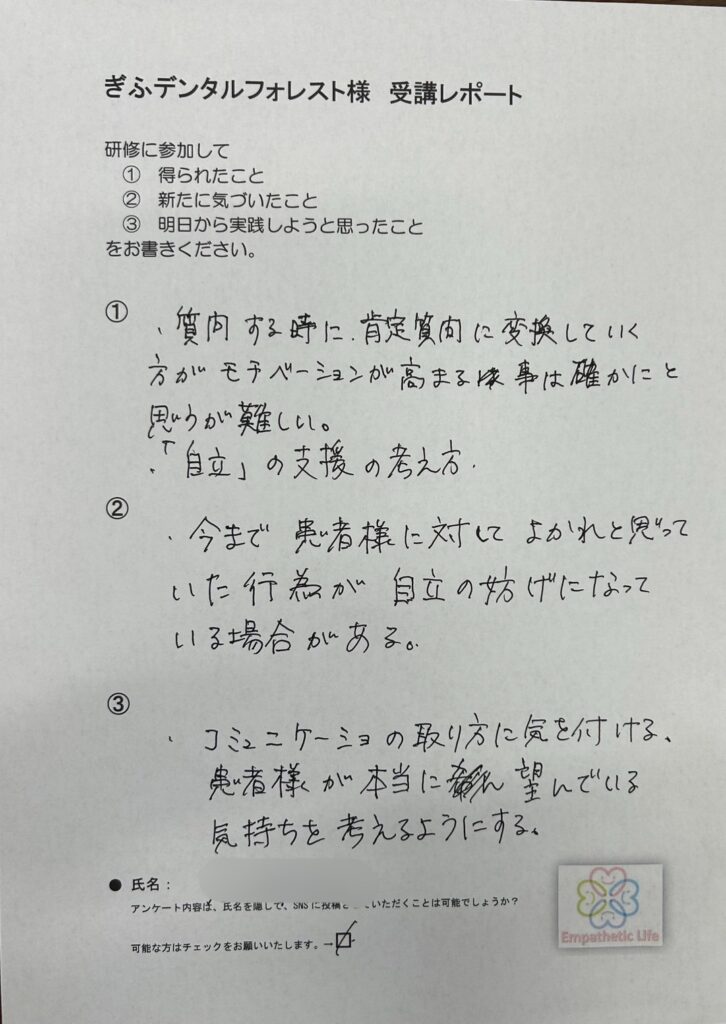 ぎふデンタルフォレスト様 受講レポート
研修に参加して
① 得られたこと
② 新たに気づいたこと
③ 明日から実践しようと思ったこと
をお書きください。
①
・質問する時に、肯定質問に変換していく
方がモチベーションが高まる事は確かにと
思うが難しい。
・「自立」の支援の考え方.
②
・今まで 患者様に対して よかれと思って
いた行為が 自立の妨げになって
いる場合がある。
③
・コミュニケーショの取り方に気を付ける、
患者様が本当に 望んでいる
気持ちを考えるようにする。
● 氏名：
アンケート内容は、氏名を隠して、SNSに投稿 いただくことは可能でしょうか？
可能な方はチェックをお願いいたします。→☑
Empathetic Life